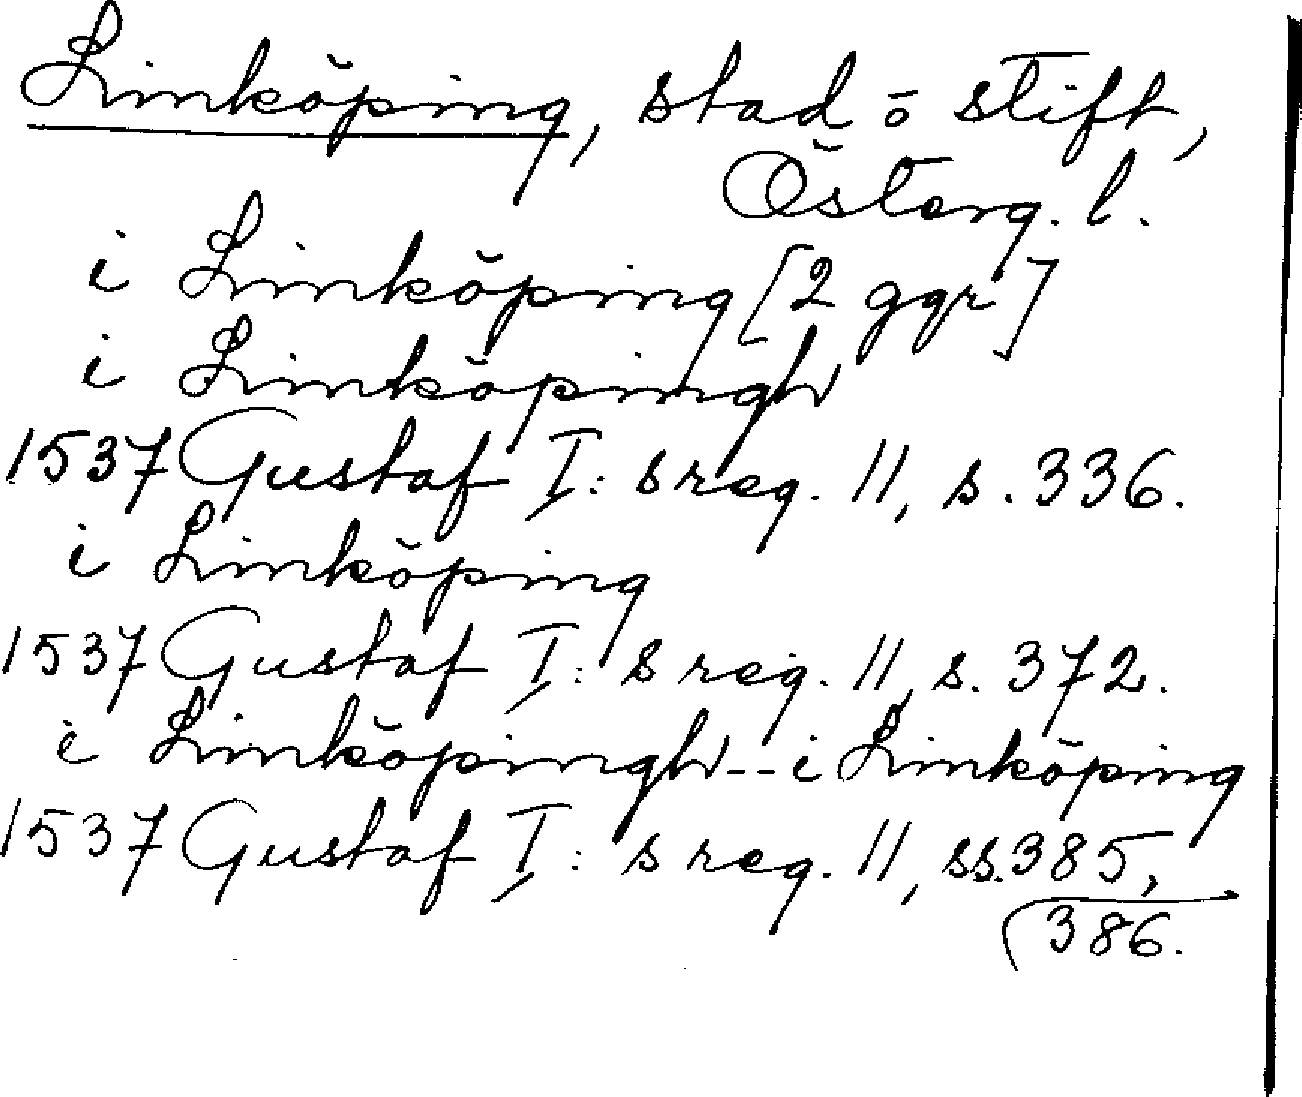 Linköping, stad o stift,
Österg. l.
i Linköping [2 ggr]
i Linköpingh
1537 Gustaf I: s reg. 11, s. 336.
i Linköping
1537 Gustaf I: s reg. 11, s. 372.
i Linköpingh -- i Linköping
1537 Gustaf I: s reg. 11, ss. 385,
386.